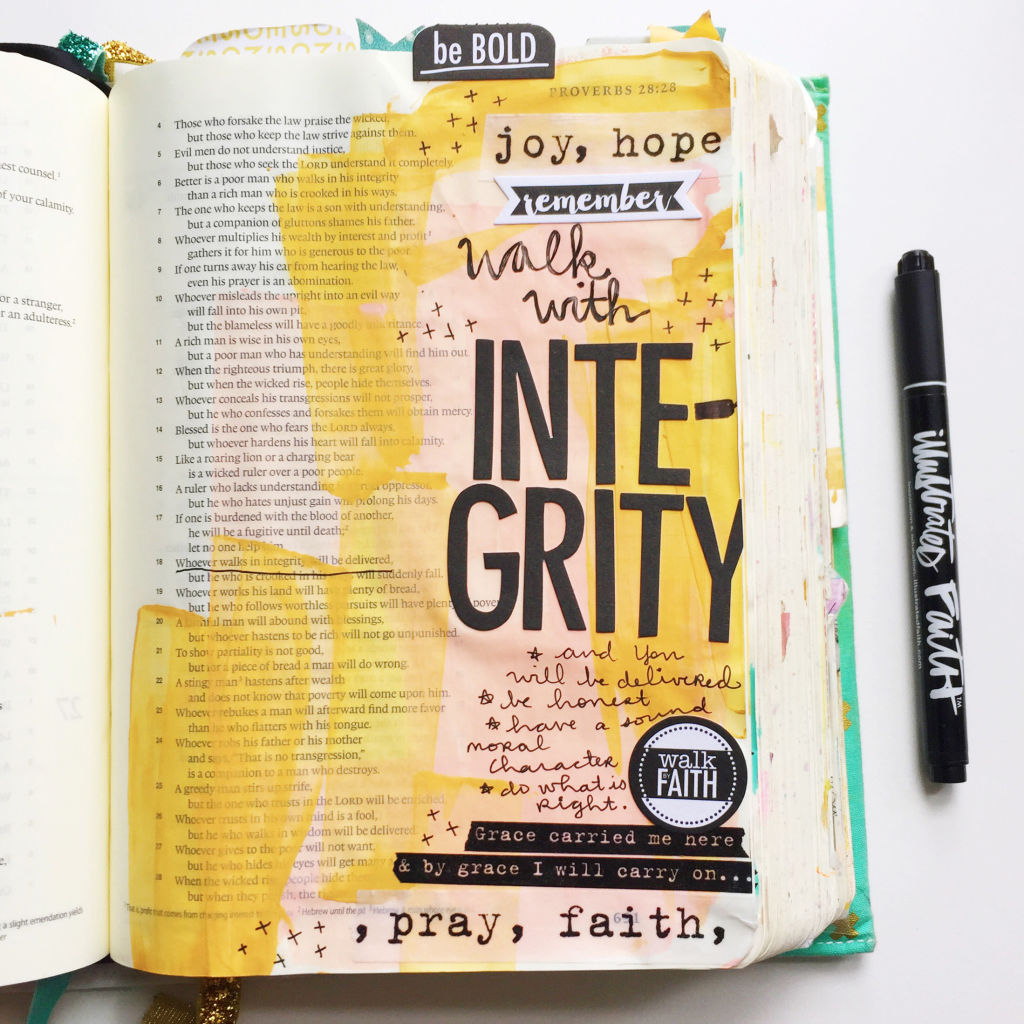 be BOLD
PROVERBS 28:28
uest counsel.¹
of your calamity.
or a stranger,
or an adulteress.²
4 Those who forsake the law praise the wicked,
but those who keep the law strive against them.
5 Evil men do not understand justice,
but those who seek the LORD understand it completely.
6 Better is a poor man who walks in his integrity
than a rich man who is crooked in his ways.
7 The one who keeps the law is a son with understanding,
but a companion of gluttons shames his father.
8 Whoever multiplies his wealth by interest and profit¹
gathers it for him who is generous to the poor.
9 If one turns away his ear from hearing the law,
even his prayer is an abomination.
10 Whoever misleads the upright into an evil way
will fall into his own pit,
but the blameless will have a goodly inheritance.
11 A rich man is wise in his own eyes,
but a poor man who has understanding will find him out.
12 When the righteous triumph, there is great glory,
but when the wicked rise, people hide themselves.
13 Whoever conceals his transgressions will not prosper,
but he who confesses and forsakes them will obtain mercy.
14 Blessed is the one who fears the LORD always,
but whoever hardens his heart will fall into calamity.
15 Like a roaring lion or a charging bear
is a wicked ruler over a poor people.
16 A ruler who lacks understanding is a cruel oppressor,
but he who hates unjust gain will prolong his days.
17 If one is burdened with the blood of another,
he will be a fugitive until death;²
let no one help him.
18 Whoever walks in integrity will be delivered,
but he who is crooked in his will suddenly fall.
19 Whoever works his land will have plenty of bread,
but he who follows worthless pursuits will have plenty of poverty
20 A faithful man will abound with blessings,
but whoever hastens to be rich will not go unpunished.
21 To show partiality is not good,
but for a piece of bread a man will do wrong.
22 A stingy man³ hastens after wealth
and does not know that poverty will come upon him.
23 Whoever rebukes a man will afterward find more favor
than he who flatters with his tongue.
24 Whoever robs his father or his mother
and says, "That is no transgression,"
is a companion to a man who destroys.
25 A greedy man stirs up strife,
but the one who trusts in the LORD will be enriched.
26 Whoever trusts in his own mind is a fool,
but he who walks in wisdom will be delivered.
27 Whoever gives to the poor will not want,
but he who hides his eyes will get many
28 When the wicked rise, people hide
but when they perish, the
¹ That is, profit that comes from charging interest ² Hebrew until the pit
a slight emendation yields
joy, hope
remember
walk
with
INTE-
GRITY
☆ and you
will be delivered
☆ be honest
☆ have a sound
moral
character
☆ do what is
right.
walk
BY
FAITH
Grace carried me here
& by grace I will carry on...
691
, pray, faith,
illustrated Faith™